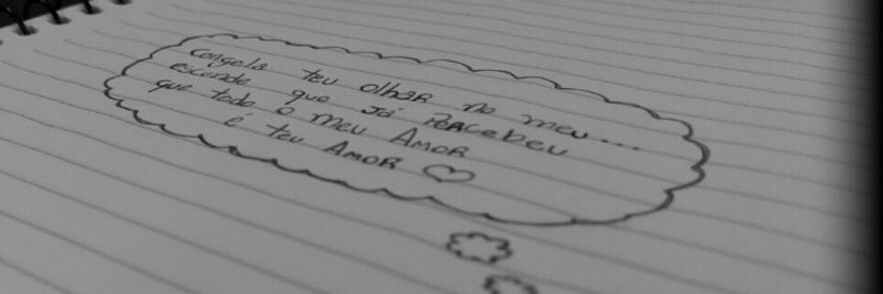 congela teu olhar no meu....
esconde que já percebeu
que todo o meu Amor
é teu Amor ♡